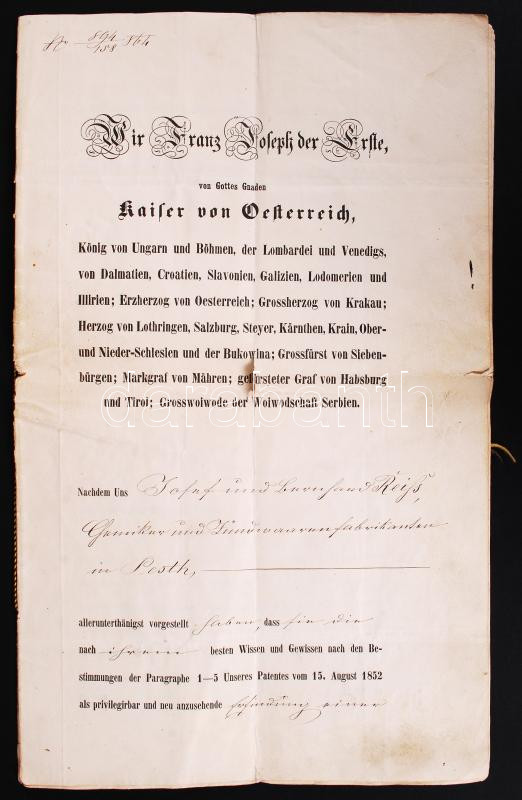 No 894/158 864
Wir Franz Joseph der Erste,
von Gottes Gnaden
Kaiser von Oesterreich,
König von Ungarn und Böhmen, der Lombardei und Venedigs,
von Dalmatien, Croatien, Slavonien, Galizien, Lodomerien und
Illirien; Erzherzog von Oesterreich; Grossherzog von Krakau;
Herzog von Lothringen, Salzburg, Steyer, Kärnthen, Krain, Ober-
und Nieder-Schlesien und der Bukowina; Grossfürst von Sieben-
bürgen; Markgraf von Mähren; gefürsteter Graf von Habsburg
und Tirol; Grosswoiwode der Woiwodschaft Serbien.
darabanth
Nachdem Uns Josef und Bernhard Reiss,
Chemiker und Zündwaarenfabrikanten
in Pesth,
allerunterthänigst vorgestellt haben, dass sie die
nach ihrem besten Wissen und Gewissen nach den Be-
stimmungen der Paragraphe 1—5 Unseres Patentes vom 15. August 1852
als privilegirbar und neu anzusehende Erfindung einer